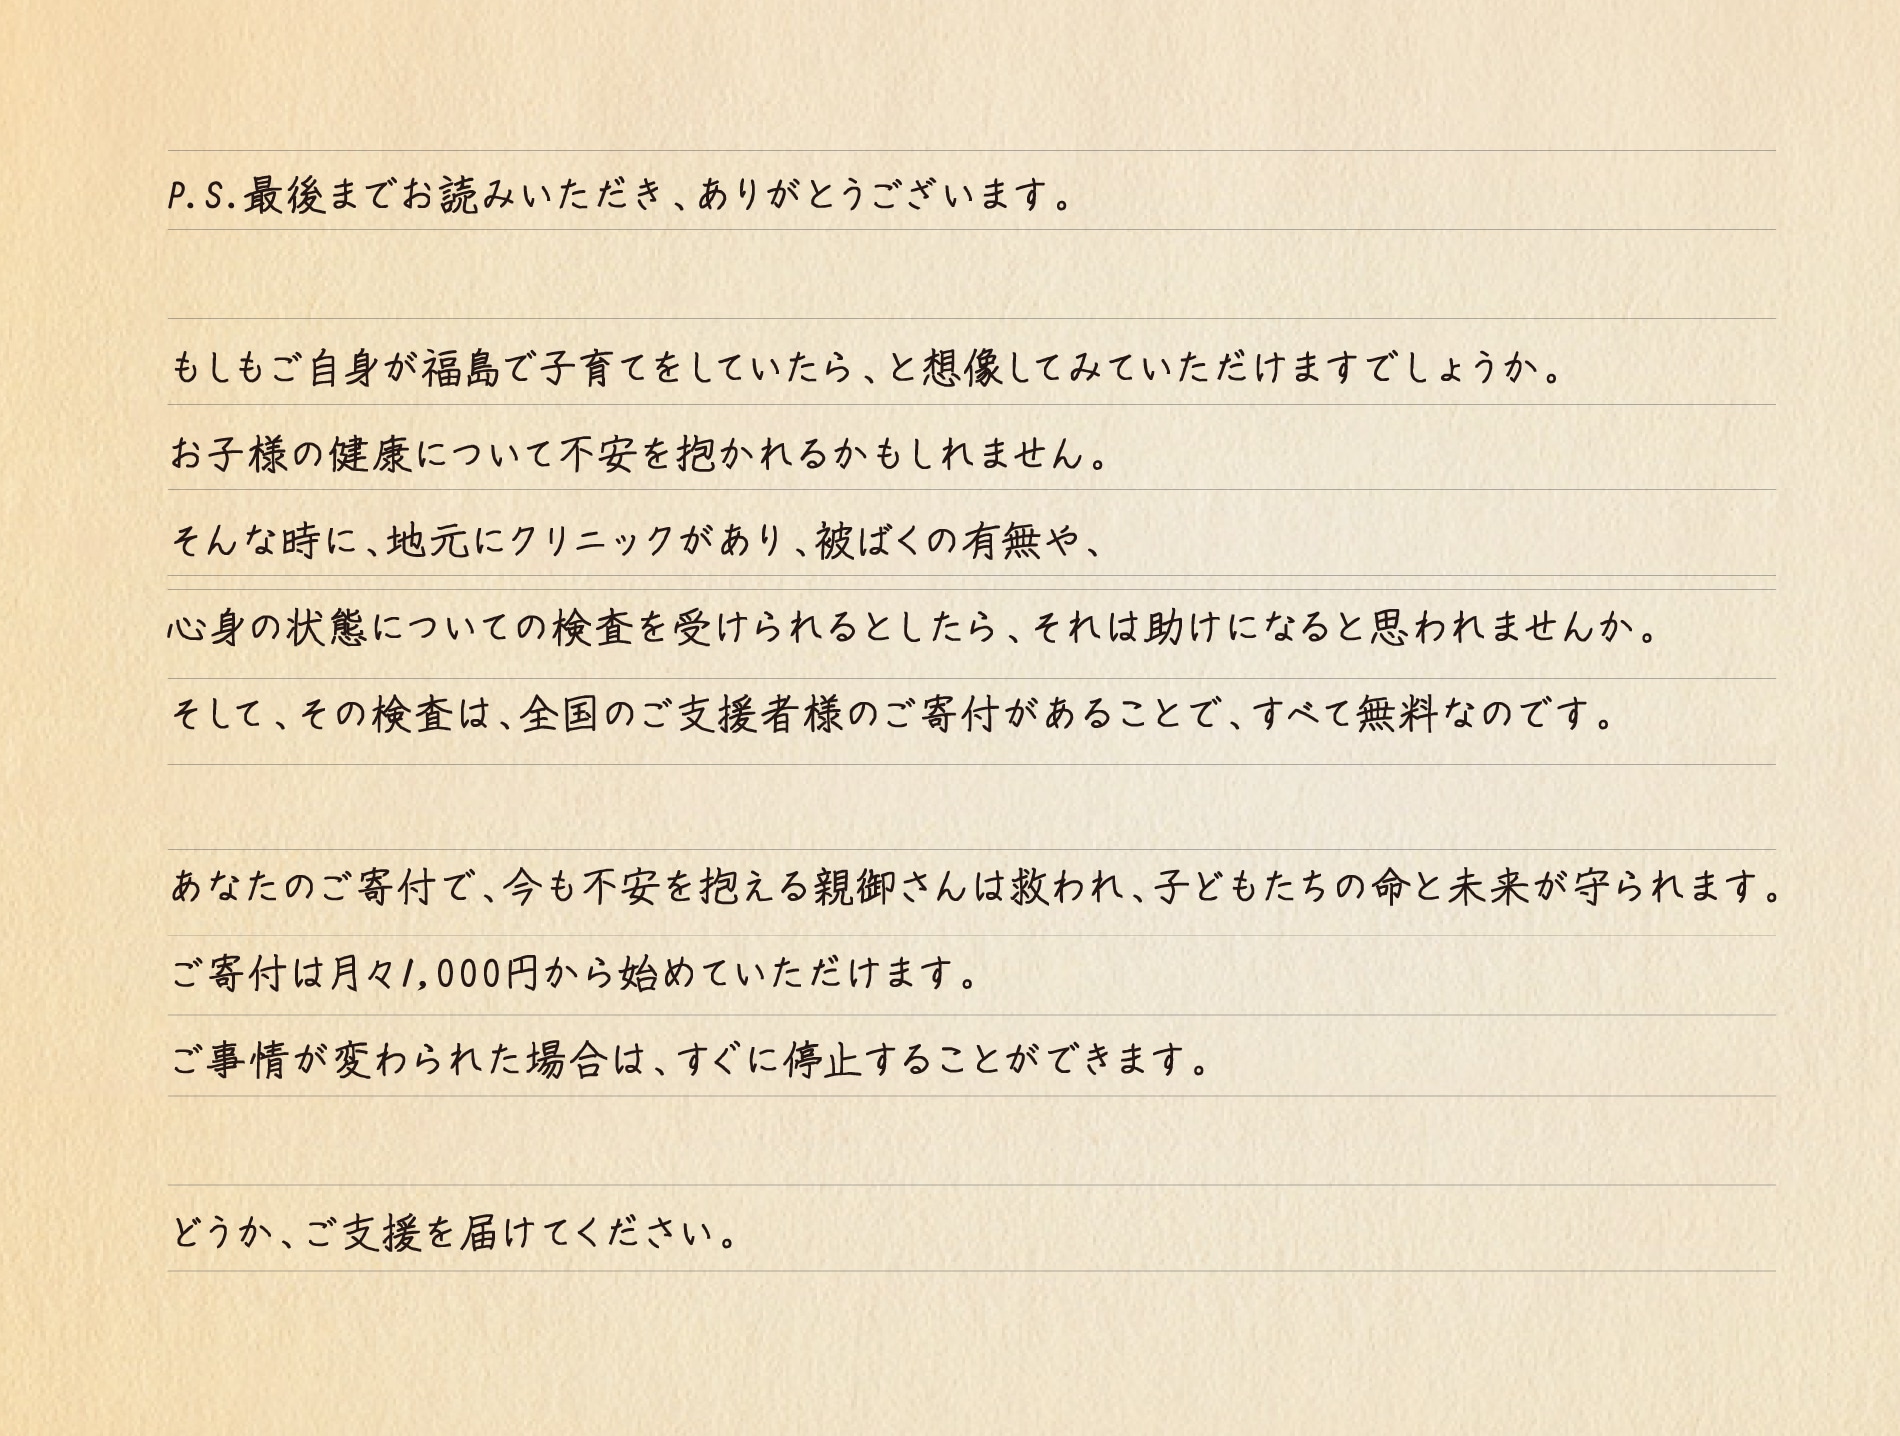 P.S.最後までお読みいただき、ありがとうございます。
もしもご自身が福島で子育てをしていたら、と想像してみていただけますでしょうか。
お子様の健康について不安を抱かれるかもしれません。
そんな時に、地元にクリニックがあり、被ばくの有無や、
心身の状態についての検査を受けられるとしたら、それは助けになると思われませんか。
そして、その検査は、全国のご支援者様のご寄付があることで、すべて無料なのです。
あなたのご寄付で、今も不安を抱える親御さんは救われ、子どもたちの命と未来が守られます。
ご寄付は月々1,000円から始めていただけます。
ご事情が変わられた場合は、すぐに停止することができます。
どうか、ご支援を届けてください。